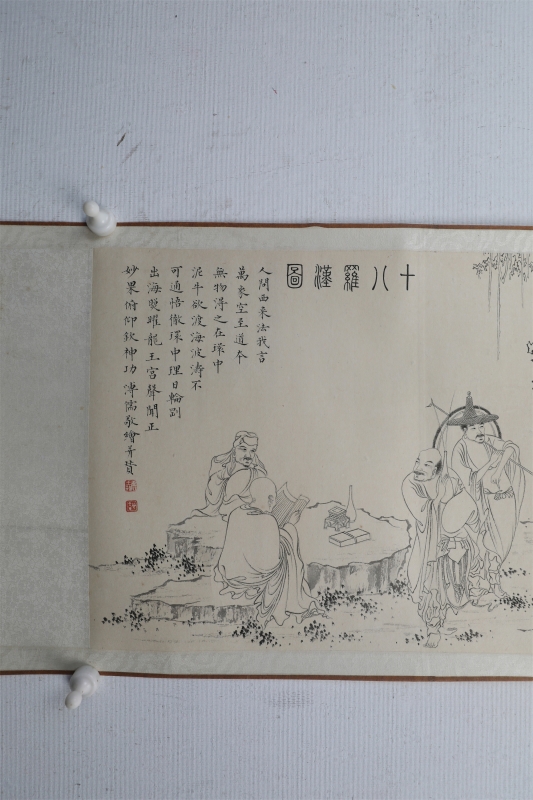 十八羅漢圖
人問西來法我言
萬象空至道本
無物得之在環中
泥牛欲渡海波濤不
可通悟徹環中理日輪別
出海曉躍龍王宮聲聞正
妙果俯仰欽神功 溥儒敬繪并贊